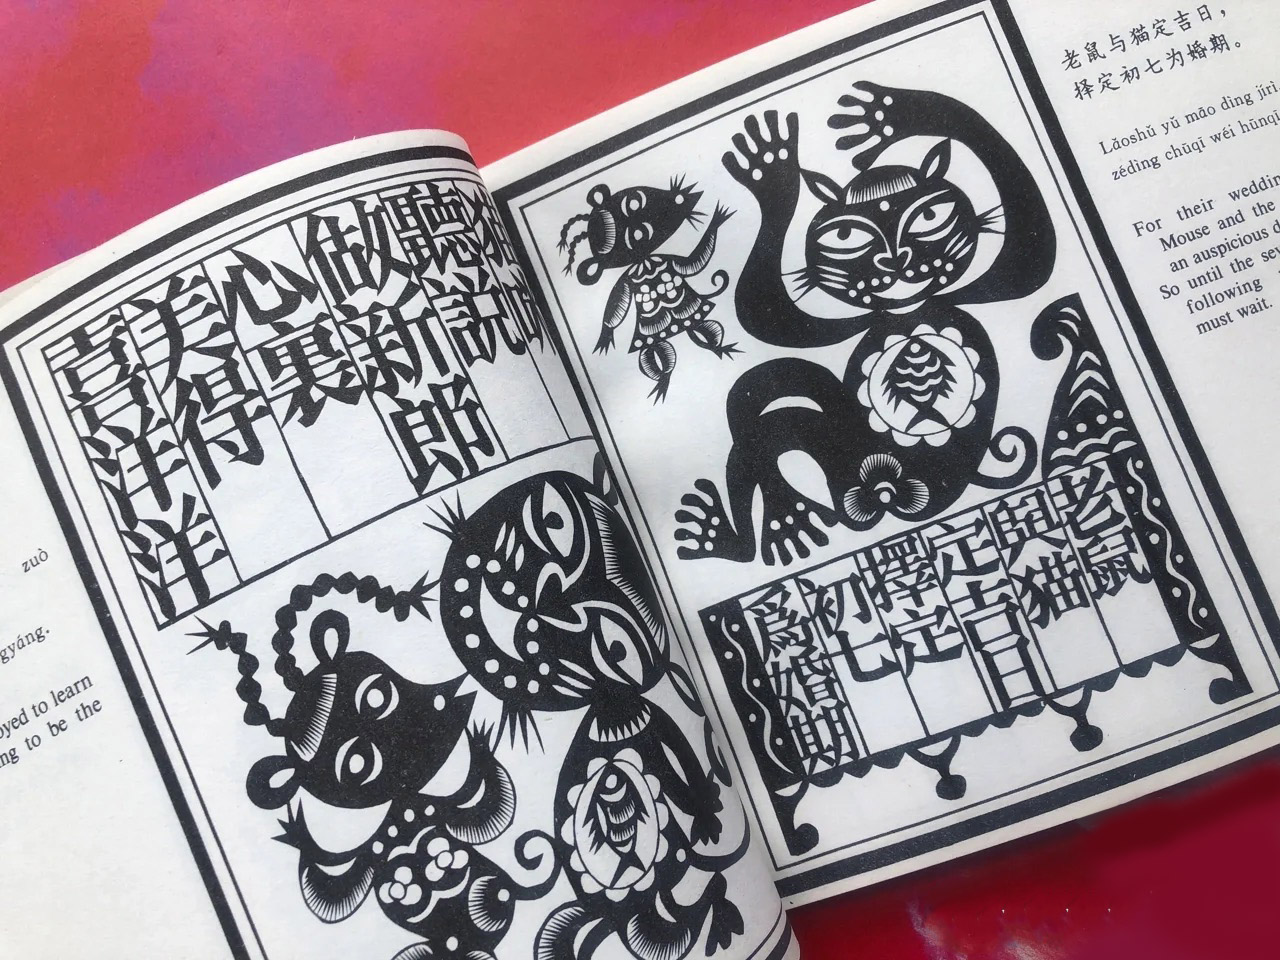 zuò
gyáng.
oyed to learn
ng to be the
猫
聽說
做新郎
心裏
美得
喜洋洋
老鼠
與猫
定吉日
擇定
初七
爲婚期
老鼠与猫定吉日，
择定初七为婚期。
Lǎoshǔ yǔ māo dìng jírì,
zédìng chūqī wéi hūnqī
For their weddin
Mouse and the
an auspicious d
So until the se
following
must wait.